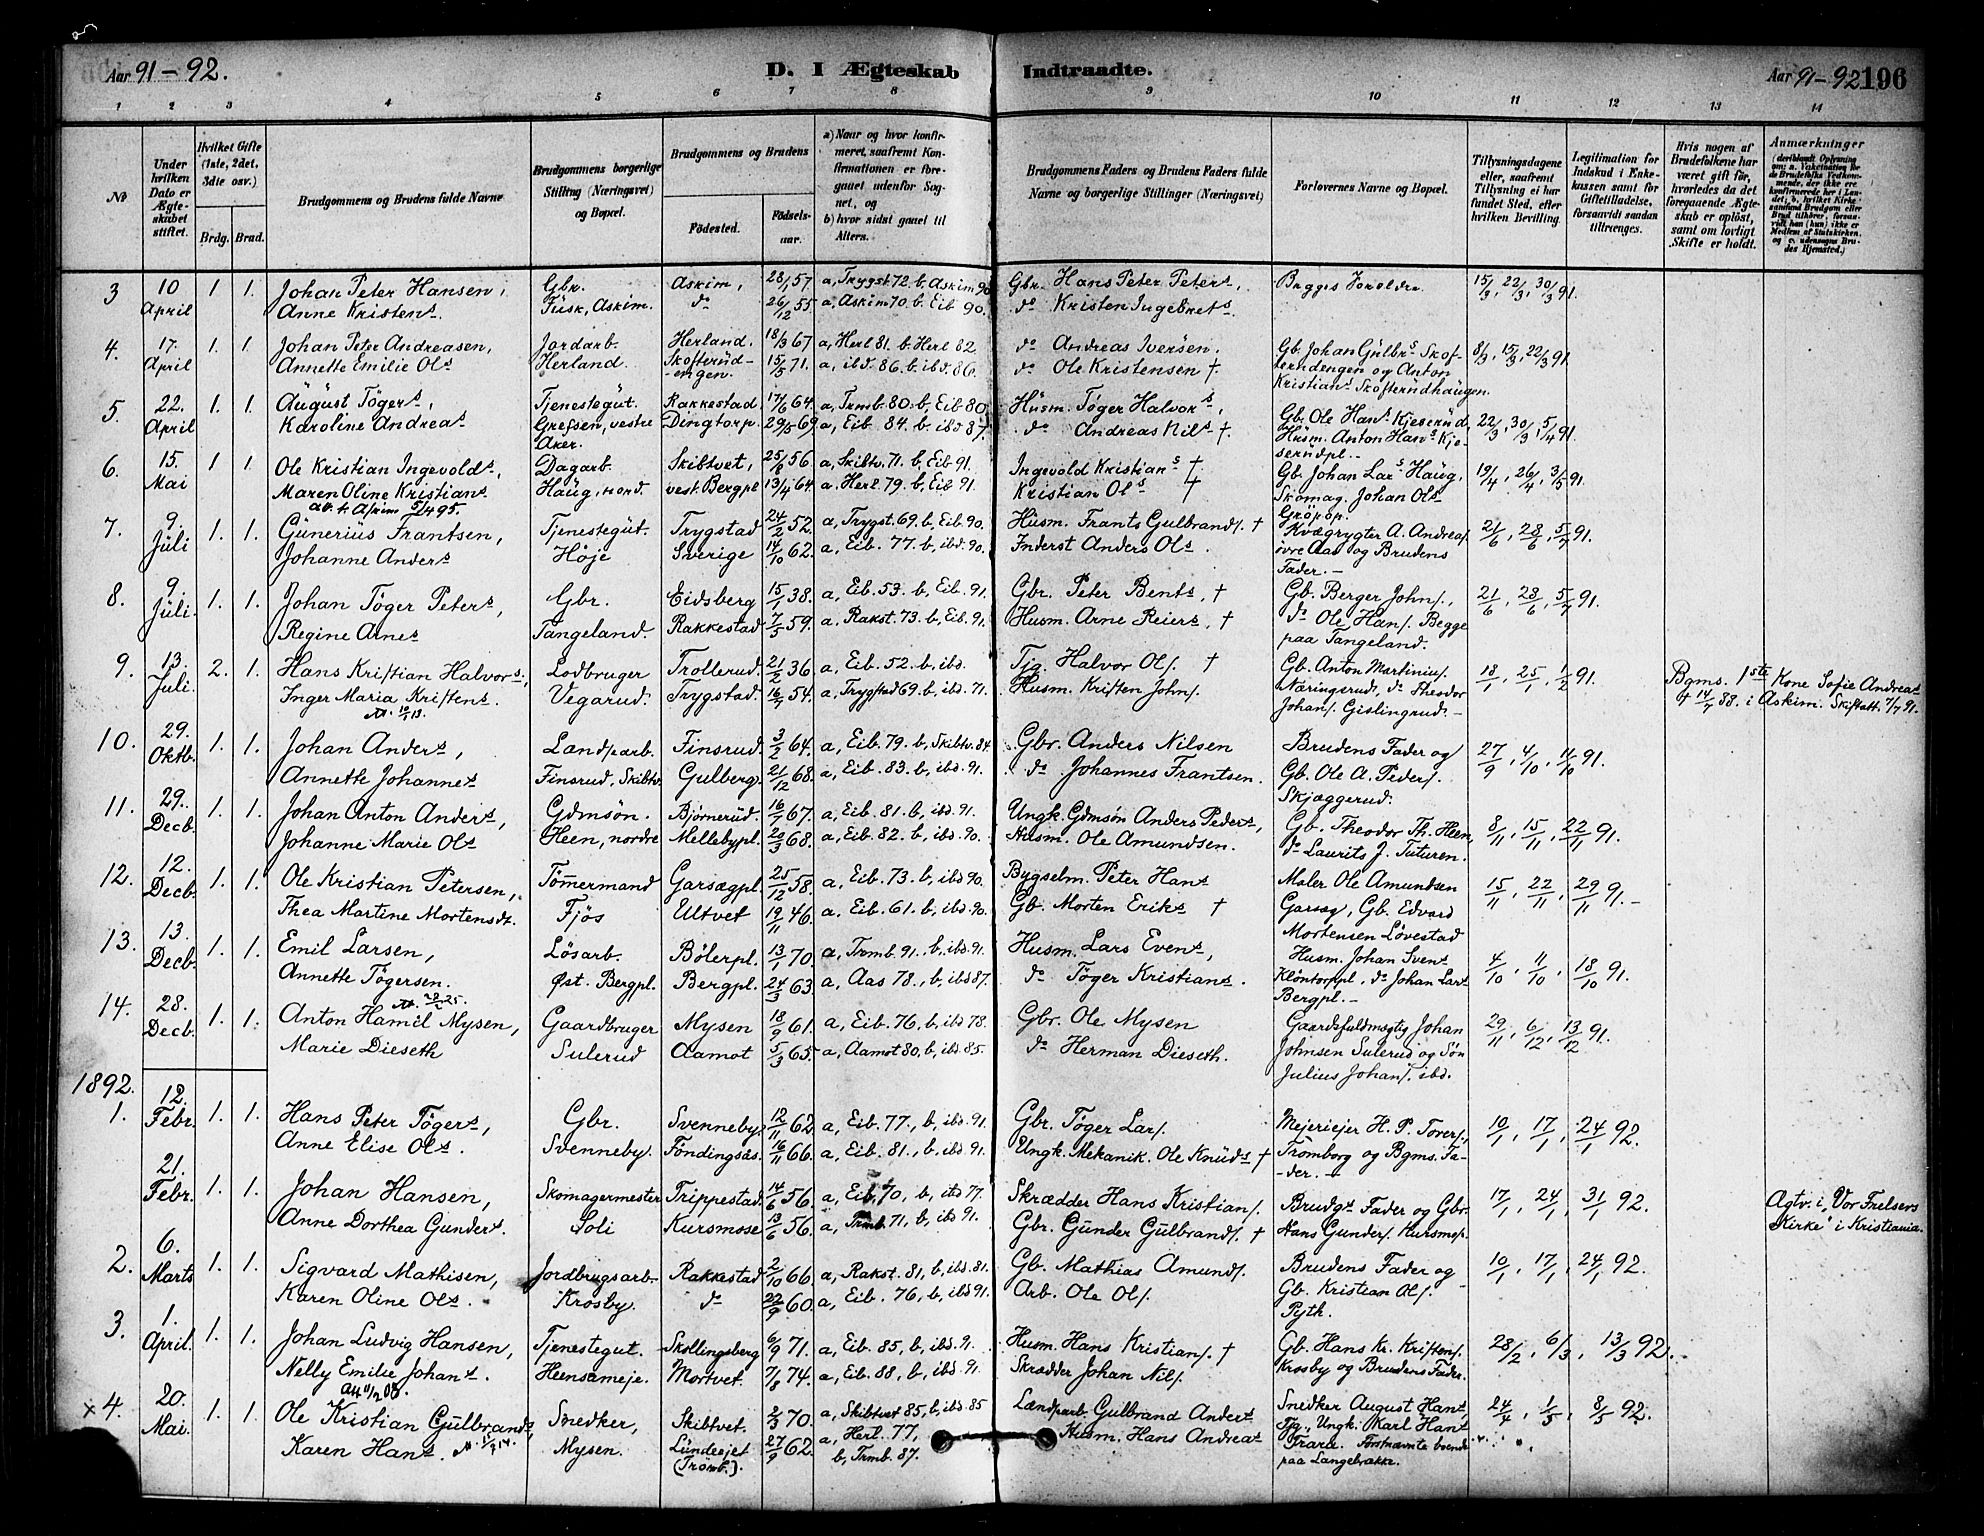 Aar 91-92.
D. I Ægteskab
Indtraadte.
Aar 91-92 196
1 2 3 4 5 6 7 8 9 10 11 12 13 14
No
Under hvilken Dato er Ægteskabet stiftet.
Hvilket Gifte (1ste, 2det, 3die osv.)
Brdg. Brud.
Brudgommens og Brudens fulde Navne
Brudgommens borgerlige Stilling (Næringsvei) og Bopæl.
Brudgommens og Brudens
Fødested.
Fødselsaar.
a) Naar og hvor konfirmeret, saafremt Konfirmationen er foregaaet udenfor Sognet, og
b) hvor sidst gaaet til Alters.
Brudgommens Faders og Brudens Faders fulde Navne og borgerlige Stillinger (Næringsvei)
Forlovernes Navne og Bopæl.
Tillysningsdagene eller, saafremt Tillysning ei har fundet Sted, efter hvilken Bevilling.
Legitimation for Indskud i Enkekassen samt for Giftetilladelse, forsaavidt saadan tiltrænges.
Hvis nogen af Brudefolkene har været gift før, hvorledes da det foregaaende Ægteskab er opløst, samt om lovligt Skifte er holdt.
Anmærkninger
3 10 April 1. 1. Johan Peter Hansen, Gbr. Askim, 28/1 57. a, Trygst 72. b, Askim 90 Gbr. Hans Peter Peters, Begges Forældre. 15/3, 22/3, 30/3 91.
Anne Kristens. Fusk, Askim. do 26/12 55. a, Askim 70. b, Eib 90. do Kristen Ingebrets.
4. 17. April 1. 1. Johan Peter Andreasen, Jordarb. Herland. 18/3 67 a, Herl 81. b. Herl 82. do Andreas Iversen. Gb. Johan Gulbrs Skof- 8/3, 15/3, 22/3 91.
Annette Emilie Ols Herland. Skofterud-engen. 15/5 71. a, ibd. 86. b. ibd. 86. do Ole Kristensen † terudengen og Anton
Kristians Skofterudhaugen.
5 22. April 1. 1. August Tøgers, Tjenestegut. Rakkestad 17/6 64. a, Trmb. 80. b, Eib 80 Husm. Tøger Halvors, Gb. Ole Hans Kjeserud 22/3, 30/3, 5/4 91.
Karoline Andreas Grefsen, vestre Aker. Dingtorp. 29/5 69. a, Eib 84. b. ibd 87. do Andreas Nils †. Husm. Anton Hans Kje-
serudpl.-
6. 15. Mai 1 1. Ole Kristian Ingevolds, Dagarb. Skibtvet, 25/8 56. a, Skibtv. 71. b, Eib 91. Ingevold Kristians † Gb. Johan Lars Haug, 19/4, 26/4, 3/5 91.
Maren Oline Kristians Haug, nord. vest. Bergpl 13/4 64. a. Herl. 79. b, Eib 91. Kristian Ols † Skomag. Johan Ols
7. 9. Juli 1. 1. Gunerius Frantsen, Tjenestegut. Trygstad 24/2 52. a, Trygst. 69. b, Eib. 90. Husm. Frants Gulbrands. † Kvægrygter A. Andreas. 21/6, 28/6, 5/7 91.
Johanne Anders Høje Sverige 14/10 62. a, Eib. 77. b, ibd. 90. Inderst Anders Ols. øvre Aas og Brudens
Fader.-
8. 9. Juli 1. 1. Johan Tøger Peters, Gbr. Eidsberg 15/1 38. a, Eib. 53. b, Eib. 91. Gbr. Peter Bents, † Gb. Berger Johns., 21/6, 28/6, 5/7 91.
Regine Arnes Tangeland. Rakkestad 7/3 59. a, Rakst. 73. b, Eib. 91. Husm. Arne Reiers, † do Ole Hans. Begge
paa Tangeland.
9. 13. Juli 2. 1. Hans Kristian Halvors., Lodbruger Trollerud. 21/2 36 a, Eib. 52. b, ibd. Tjg. Halvor Ols. † Gb. Anton Martinius. 18/1, 25/1, 1/2 91. Bgms. 1ste Kone Sofie Andreas
Inger Maria Kristens. Vegarud. Trygstad. 16/7 54. a, Trygstad 69. b, ibd. 71. Husm. Kristen Johns. Næringsrud, do Theodor † 14/7 88. i Askim. Skiftatt. 7/7 91.
Johans. Gislingrud.-
10. 29. Oktb. 1. 1. Johan Anders, Landsarb. Finsrud. 3/2 64. a, Eib. 79. b, Skibtv. 84. Gbr. Anders Nilsen Brudens Fader og 27/9, 4/10, 11/10 91.
Annette Johannes Finsrud, Skibtv. Gulberg. 21/12 68. a, Eib. 83. b, ibd. 91. do Johannes Frantsen. Gb. Ole A. Peders.
Skjæggerud.
11. 29. Decb. 1. 1. Johan Anton Anders, Gdmsøn. Bjørnerud. 16/7 67. a, Eib. 81. b, ibd. 91. Ungk. Gdmsøn Anders Peders, Gb. Theodor Th. Heen, 8/11, 15/11, 22/11 91.
Johanne Marie Ols Heen, nordre Mellebypl. 20/3 68. a, Eib. 82. b, ibd. 90. Husm. Ole Amundsen. do Laurits J. Tuturen.
12. 12. Decb. 1. 1. Ole Kristian Petersen, Tømermand Garsægpl. 25/12 58. a, Eib. 73. b, ibd 90. Bygselm. Peter Hans Maler Ole Amundsen 15/11, 22/11, 29/11 91.-
Thea Martine Mortensdt. Fjøs Ultvet 19/11 46. a, Eib. 61. b, ibd. 90. Gb. Morten Eriks † Garsæg, Gb. Edvard
Mortensen Løvestad
13. 13. Decb. 1. 1. Emil Larsen, Løsarb. Bølerpl. 13/1 70. a, Trmb. 91. b, ibd. 91. Husm. Lars Evens, Husm. Johan Svens 4/10, 11/10, 18/10 91.
Annette Tøgersen. Øst. Bergpl. Bergpl. 24/3 63 a, Aas 78., b, ibd 87. do Tøger Kristians. Kløntorppl, do Johan Lars
Bergpl.-
14. 28. Decb. 1. 1. Anton Hamil Mysen, Gaardbruger Mysen 18/9 61. a, Eib. 76, b, ibd 78. Gbr. Ole Mysen Gaardsfuldmægtig Johan 29/11, 6/12, 13/12 91.
Marie Dieseth Sulerud Aamot 5/3 65. a, Aamot 80, b, ibd. 85. do Herman Dieseth. Johnsen Sulerud og Søn
Julius Johans. ibd.
1892.
1. 12. Febr. 1. 1. Hans Peter Tøgers, Gbr. Svenneby. 12/11 62 a, Eib. 77., b, ibd. 91. Gbr. Tøger Lars. Mejeriejer H. P. Tovers., 10/1, 17/1, 24/1 92.
Anne Elise Ols. Svenneby. Føndingsås. 16/11 66. a, Eib. 81., b, ibd. 91. Ungk. Mekanik. Ole Knuds † Tromborg og Bgms. Fa-
-der.-
21. Febr. 1. 1. Johan Hansen, Skomagermester Trippestad. 14/6 56 a, Eib. 70, b, ibd 77. Skrædder Hans Kristians. Brudgs Fader og Gbr. 17/1, 24/1, 31/1 92. Agtv. i "Vor Frelsers
Anne Dorthea Gunders. Soli Kursmose 13/6 56. a, Trmb. 71, b, ibd. 91. Gbr. Gunder Gulbrands. † Hans Gunders. Kursmos. Kirke" i Kristiania.
2. 6. Marts 1. 1. Sigvard Mathisen, Jordbrugsarb. Rakkestad 2/10 66. a, Rakst. 81, b, ibd. 81. Gb. Mathias Amunds. Brudens Fader og 10/1, 17/1, 24/1 92.
Karen Oline Ols. Krosby. do 22/9 60. a, Eib. 76, b, ibd 91. Arb. Ole Ols. Gb. Kristian Ols.
3. 1. April. 1. 1. Johan Ludvig Hansen, Tjenestegut. Skollingsberg 6/9 71. a, Eib. 85, b, ibd. 91. Husm. Hans Kristians. † Gb. Hans Kr. Kristens. 28/2, 6/3, 13/3 92.
Nelly Emilie Johans. Heensameje. Mortvet. 7/8 74. a, Eib. 88, b, ibd. 91. Skrædder Johan Nils. Krosby og Brudens Fader.
x 4. 20. Mai. 1. 1. Ole Kristian Gulbrands, Snedker, Skibtvet. 2/3 70. a, Skibtvet 85, b, ibd. 85 Landsarb. Gulbrand Anders Snedker August Hans 24/4, 1/5, 8/5 92.
Karen Hans. Mysen. Lundeejet 27/9 62. a, Herl. 77, Husm. Hans Andreas Tjg., Ungk. Karl Hans
(Trømb.). b, Trmb. 87. Frara. Førstnævnte boende
paa Langebrække.